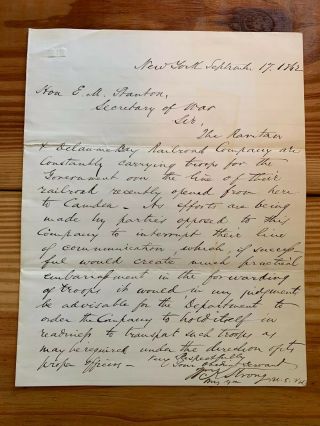 New York September 17. 1862
Hon E. M. Stanton,
Secretary of War
Sir,
The Raritan
& Delaware Bay Railroad Company are
constantly carrying troops for the
Government over the line of their
railroad recently opened from here
to Camden - As efforts are being
made by parties opposed to this
Company to interrupt their line
of communication which if success
ful would create much practical
embarrassment in the forwarding
of troops it would in my judgment
be advisable for the Department to
order the Company to hold itself in
readiness to transport such troops as
may be required under the direction of its
proper Officers -
Very Respectfully
Your Obedient Servant
Wm K Strong
U.S. Vol